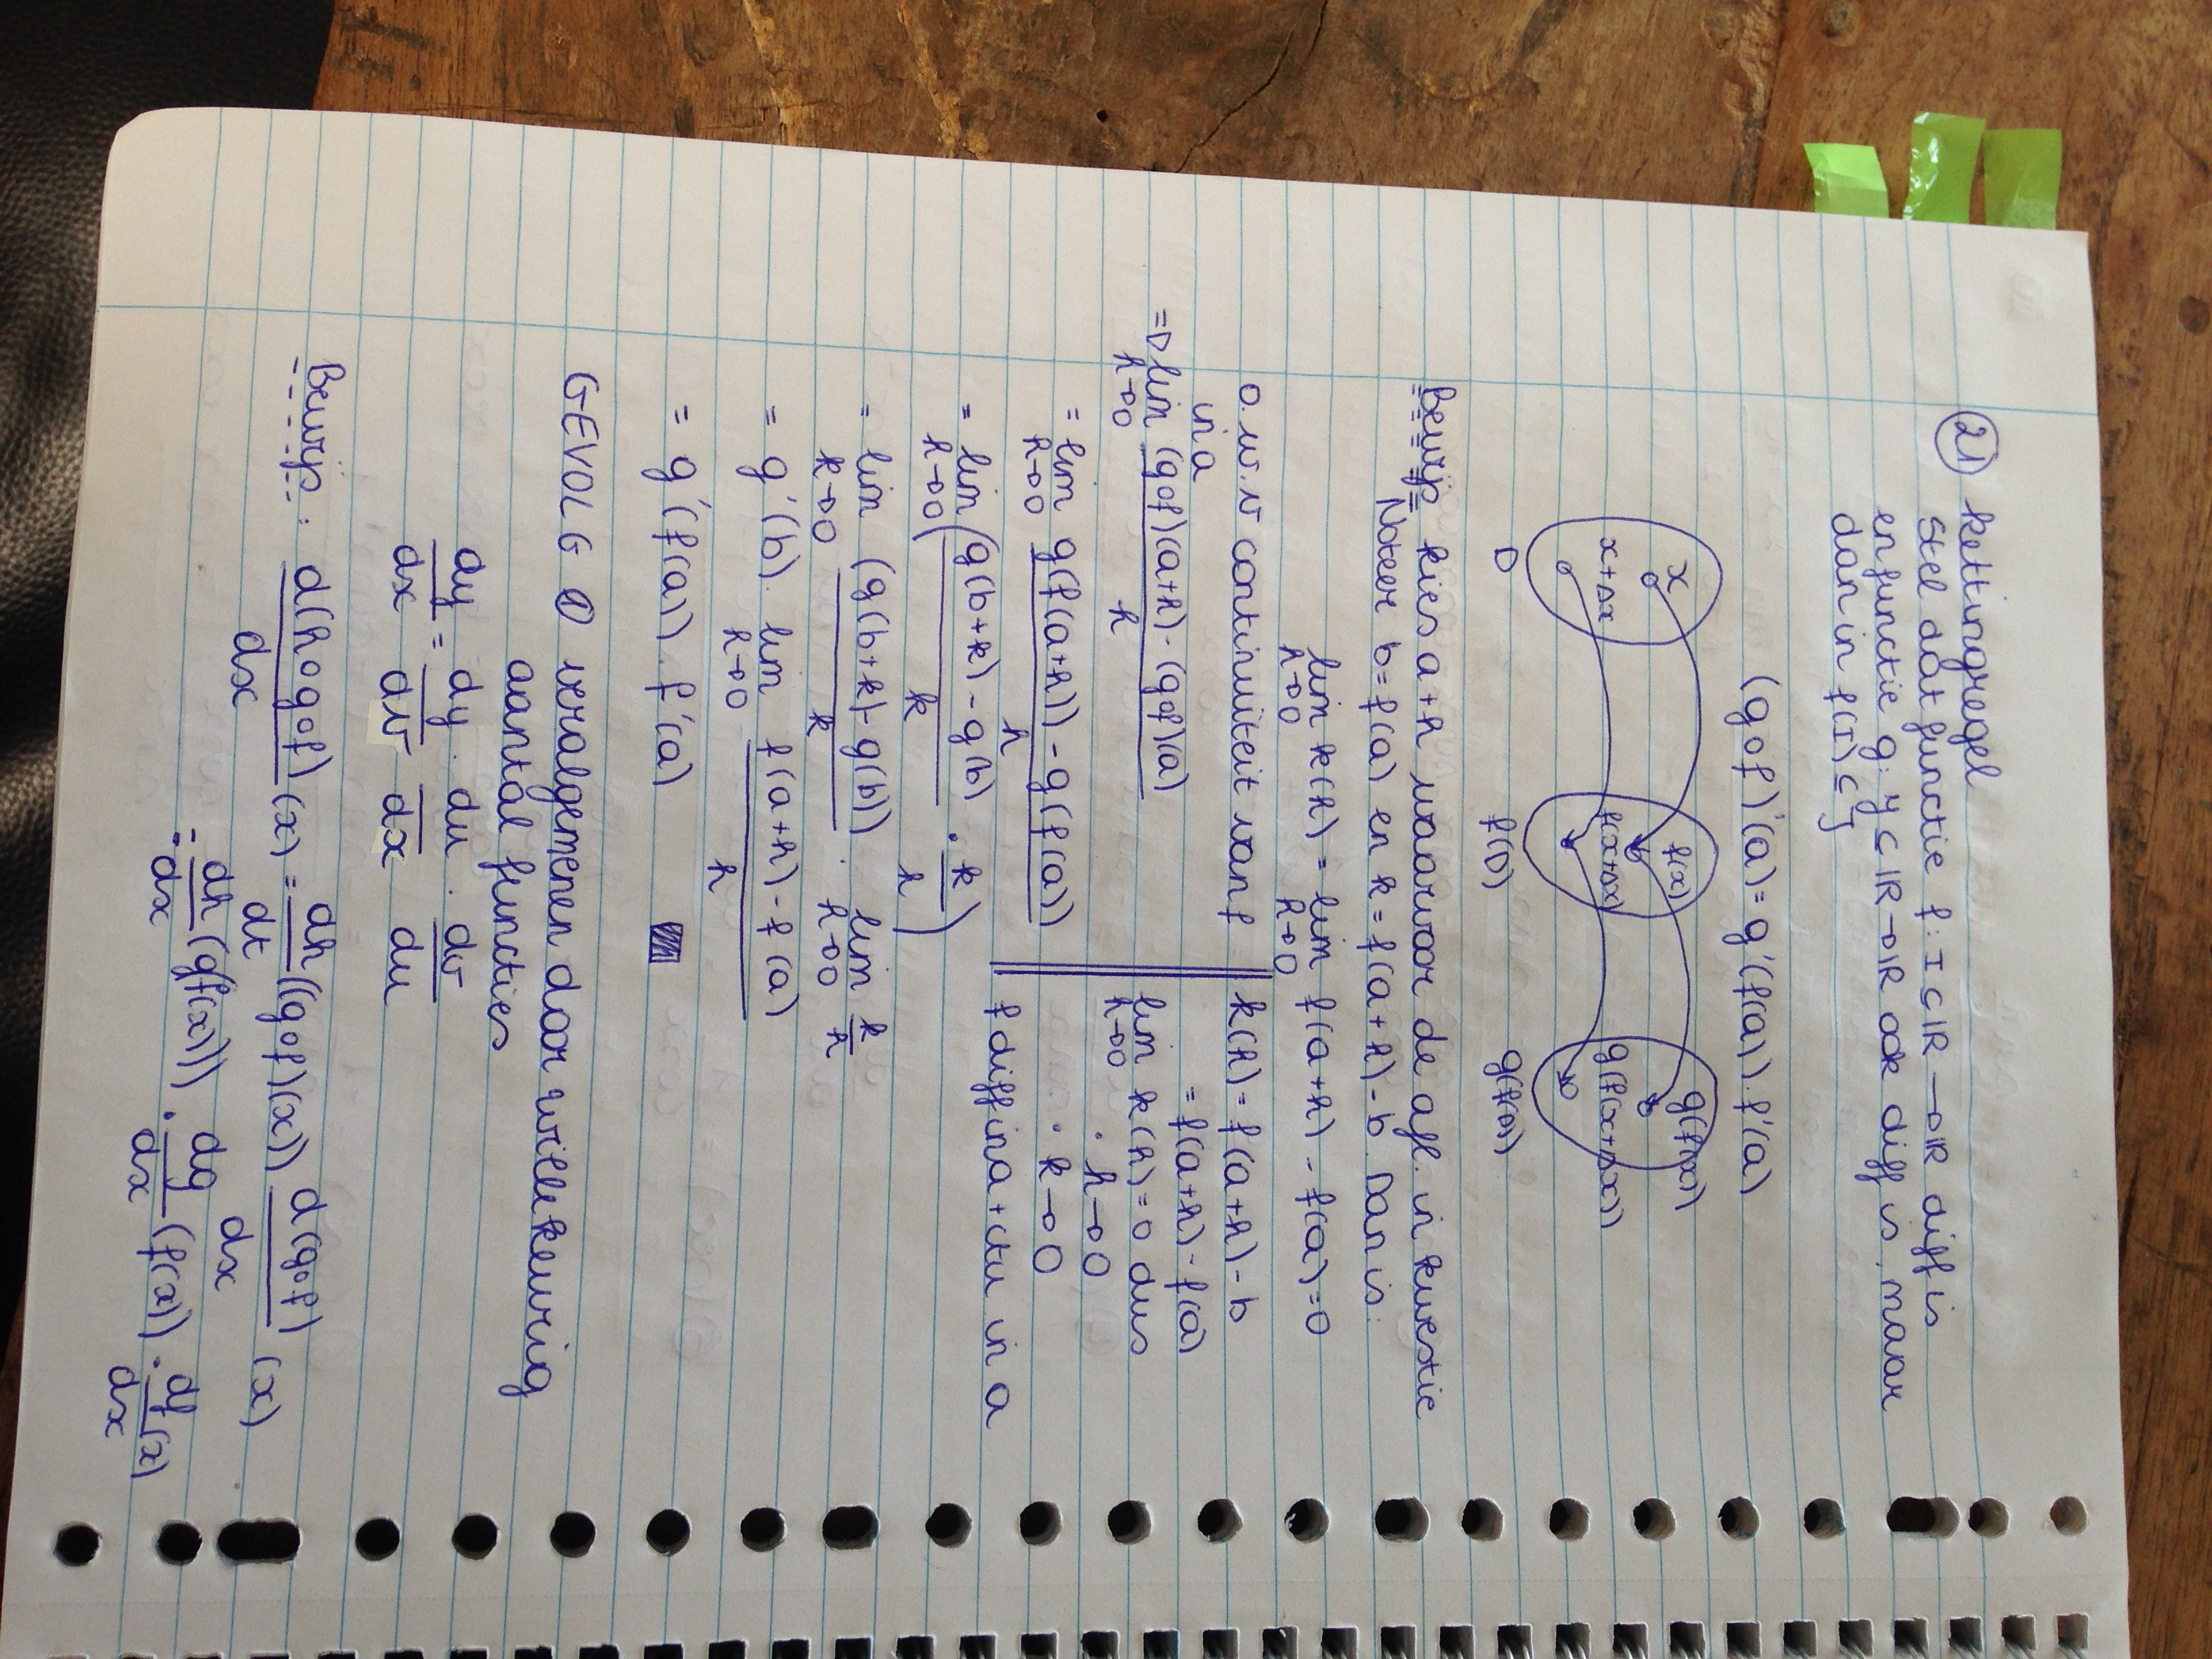 21 kettingregel
Stel dat functie f: I ⊆ IR → IR diff is
en functie g: y ⊆ IR → IR ook diff is, maar
dan in f(I) ⊆ J
(g o f)'(a) = g'(f(a)) . f'(a)
x f(x) g(f(x))
x+Δx f(x+Δx) g(f(x+Δx))
D f(D) g(f(D))
Bewijs kies a+h waarvoor de afl. in kwestie
Noteer b = f(a) en k = f(a+h) - b. Dan is:
lim h→0 k(h) = lim h→0 f(a+h) - f(a) = 0
o.w.v continuïteit van f
in a
=> lim h→0 (gof)(a+h) - (gof)(a) / h
= lim h→0 g(f(a+h)) - g(f(a)) / h
= lim h→0 ( g(b+k) - g(b) / k . k / h )
= lim k→0 (g(b+k) - g(b)) / k . lim h→0 k / h
= g'(b) . lim h→0 f(a+h) - f(a) / h
= g'(f(a)) . f'(a)
k(h) = f(a+h) - b
= f(a+h) - f(a)
lim h→0 k(h) = 0 dus
· h→0
· k→0
f diff in a + ctu in a
GEVOLG ① veralgemenen door willekeurig
aantal functies
dy/dx = dy/dv . du/dx . dv/du
Bewijs: d(h o g o f)/dx (x) = dh/dt ((gof)(x)) d(gof)/dx (x)
= dh/dx (g(f(x))) . dg/dx (f(x)) . df/dx (x)